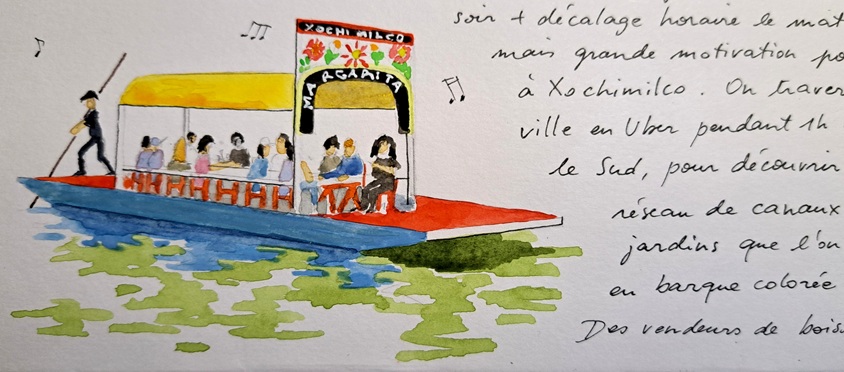 XOCHIMILCO
MARGARITA
soir + décalage horaire le mat
mais grande motivation po
à Xochimilco. On traver
ville en Uber pendant 1h
le Sud, pour découvrir
réseau de canaux
jardins que l'on
en barque colorée
Des vendeurs de bois